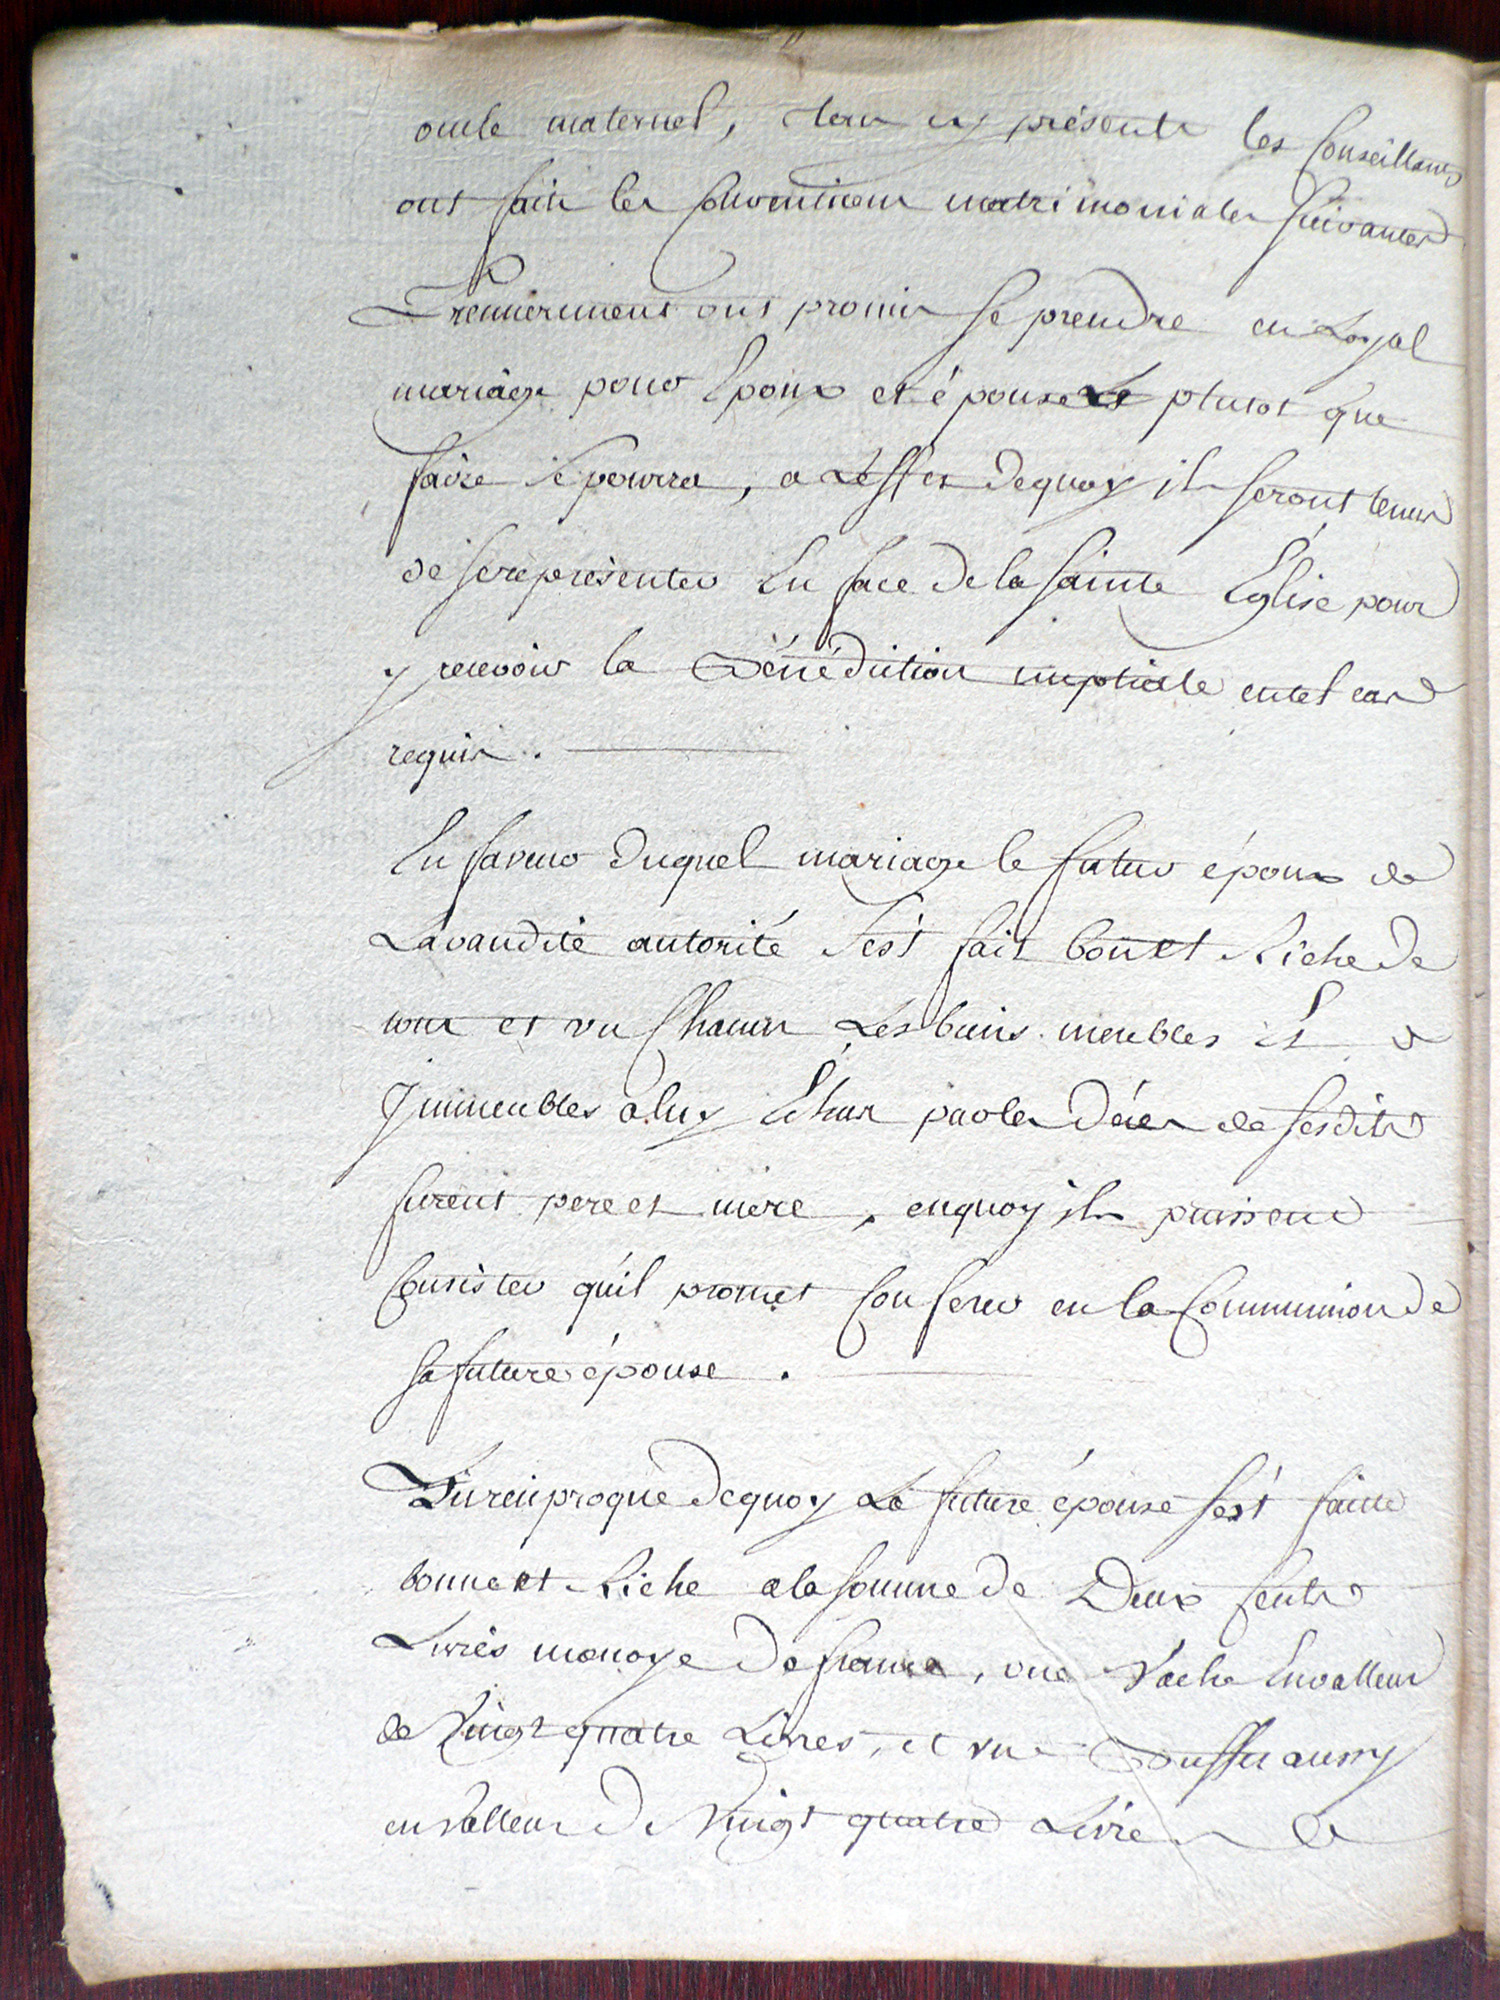 oncle maternel, tous cy présents les Conseillants
ont fait les Conventions matrimoniales suivantes
Premierement ont promis se prendre en Loyal
mariage pour Epoux et épouse Le plutot que
faire se pourra, a L'effet dequoy ils seront tenus
de se représenter En face de la sainte Eglise pour
y recevoir la Bénédiction nuptialle en tel cas
requis.
En faveur duquel mariage le futur époux de
Lavandite autorité s'est fait bon et Riche de
tous et un Chacun Les biens meubles Et
Immeubles a luy Echus par les Décès de sesdits
furent pere et mere, enquoy ils puissent
Consister qu'il promet Conferer en la Communion de
sa future épouse.
En reciproque dequoy La future épouse s'est faitte
bonne et Riche a la somme de Deux Cents
Livres monoye de france, une Vache En valleur
de Vingt quatre Livres, et une aussy
en Valleur de Vingt quatre Livres